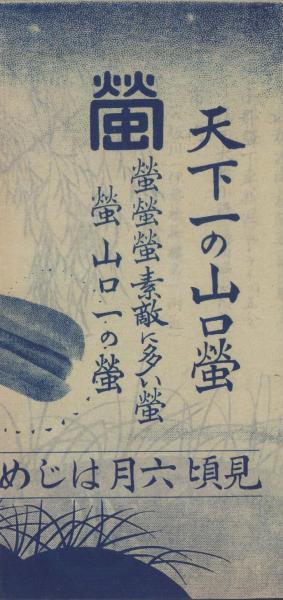 天下一の山口螢
螢
螢螢螢素敵に多い螢
螢山口一の螢
見頃六月はじめ